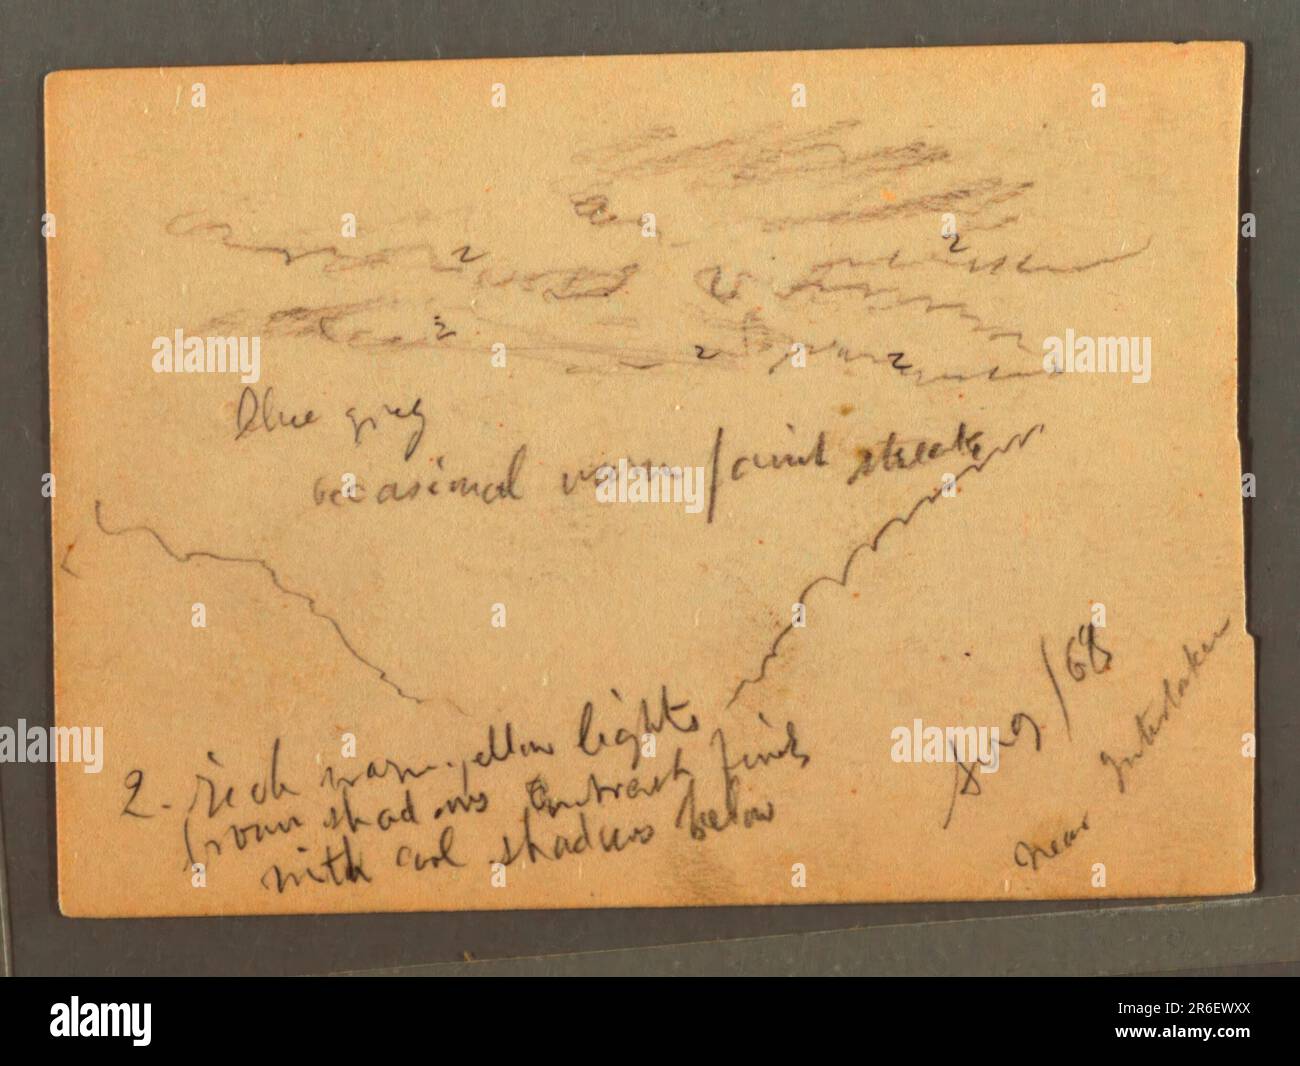 2
2
2
2
2
blue grey
occasional warm faint streak
2. rich warm yellow lights
warm shadows contrast
with cool shadows below
Aug / 68
near Interlaken
alamy
Image ID: 2R6EWXX
www.alamy.com